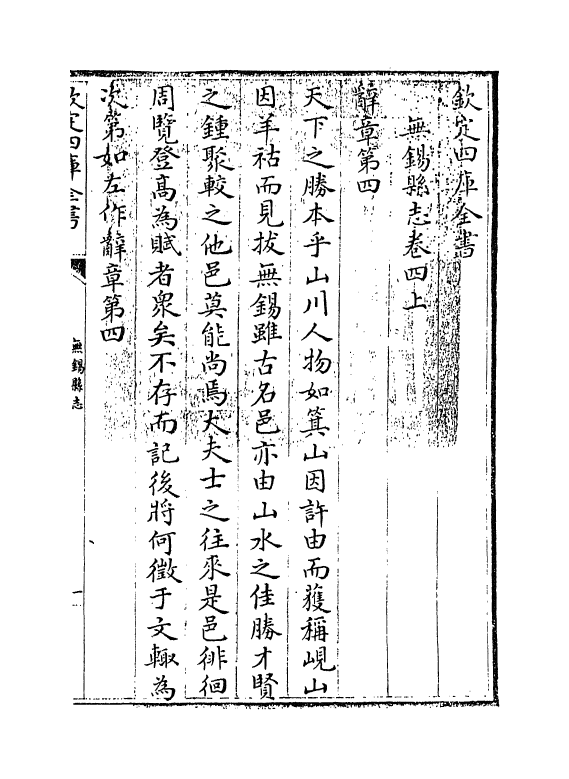 欽定四庫全書
無錫縣志卷四上
辭章第四
天下之勝本乎山川人物如箕山因許由而獲稱峴山
因羊祜而見拔無錫雖古名邑亦由山水之佳勝才賢
之鍾聚較之他邑莫能尚焉大夫士之往來是邑徘徊
周覽登髙為賦者衆矣不存而記後將何徵于文輙為
次第如左作辭章第四
欽定四庫全書
無錫縣志
一